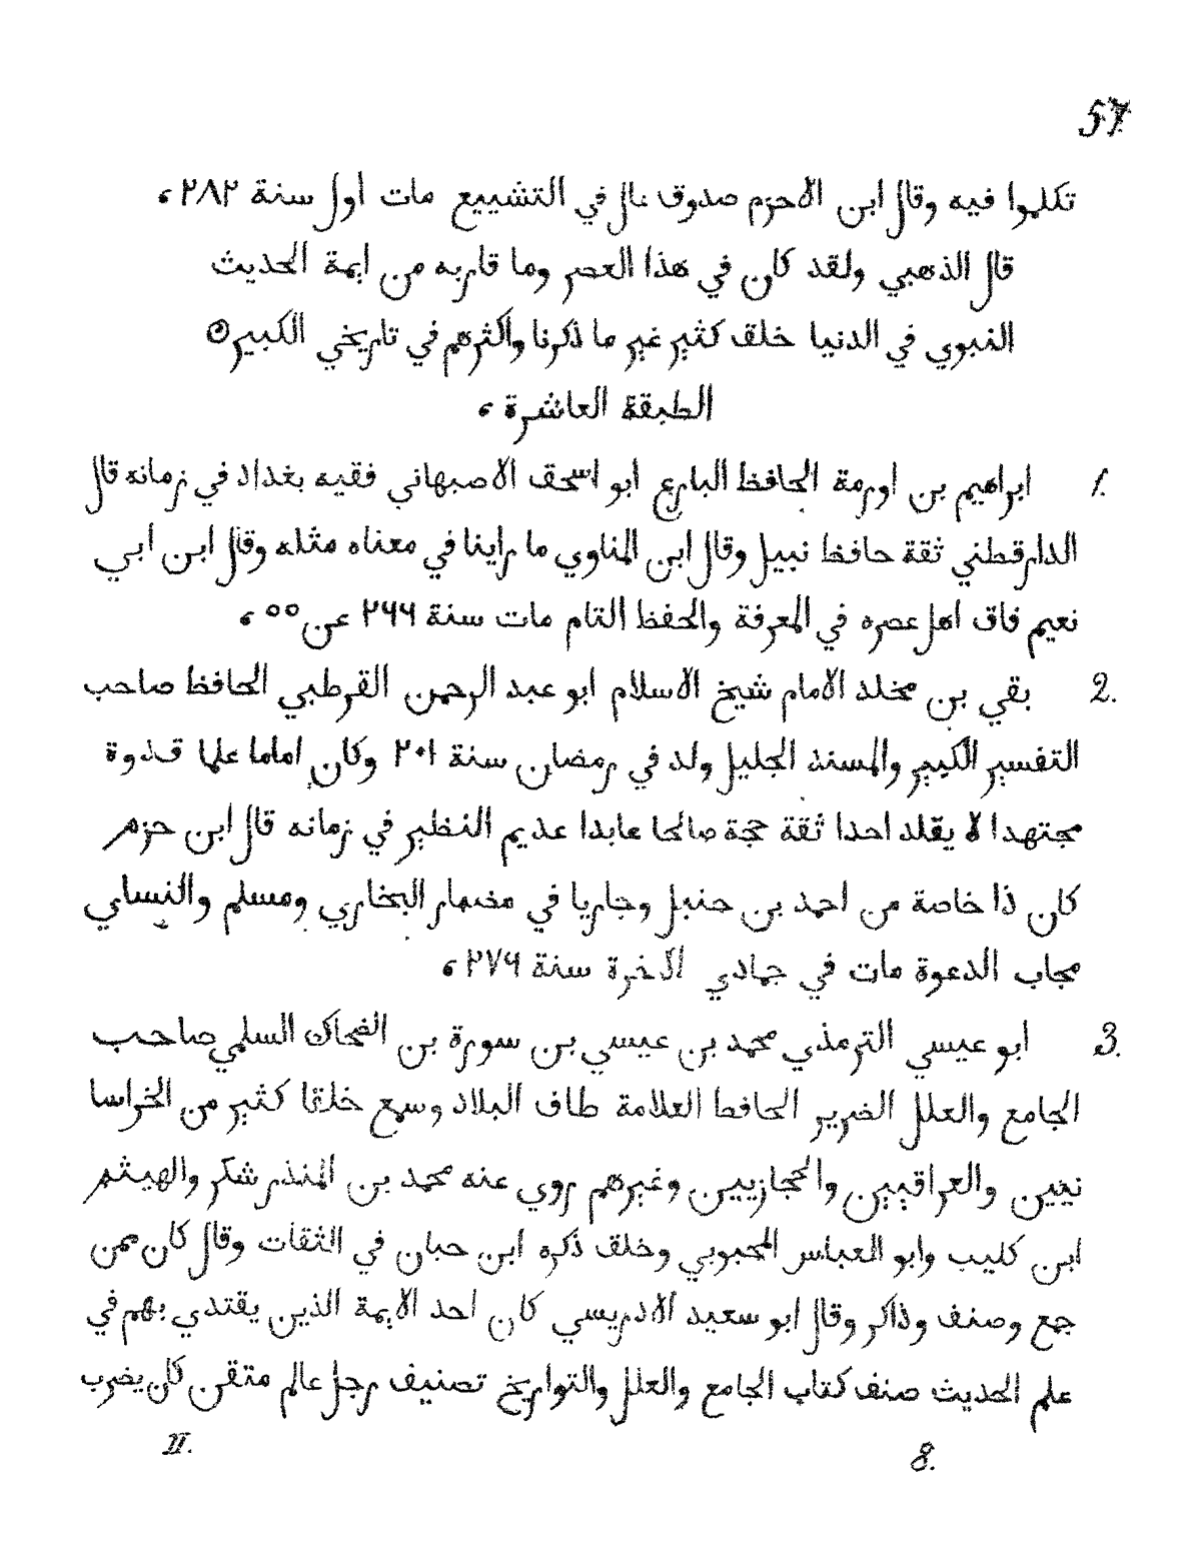 57
تكلموا فيه وقال ابن الاحزم صدوق نال في التشييع مات اول سنة ٢٨٢،
قال الذهبي ولقد كان في هذا العصر وما قاربه من ايمة الحديث
النبوي في الدنيا خلق كثير غير ما ذكرنا واكثرهم في تاريخي الكبير ه
الطبقة العاشرة،
1. ابراهيم بن اورمة الحافظ البارع ابو اسحق الاصبهاني فقيه بغداد في زمانه قال
الدارقطني ثقة حافظ نبيل وقال ابن المناوي ما راينا في معناه مثله وقال ابن ابي
نعيم فاق اهل عصره في المعرفة والحفظ التام مات سنة ٢٦٦ عن ٥٥،
2. بقي بن مخلد الامام شيخ الاسلام ابو عبد الرحمن القرطبي الحافظ صاحب
التفسير الكبير والمسند الجليل ولد في رمضان سنة ٢٠١ وكان اماما علما قدوة
مجتهدا لا يقلد احدا ثقة حجة صالحا عابدا عديم النظير في زمانه قال ابن حزم
كان ذا خاصة من احمد بن حنبل وجاريا في مضمار البخاري ومسلم والنساي
مجاب الدعوة مات في جمادي الاخرة سنة ٢٧٦،
3. ابو عيسي الترمذي محمد بن عيسي بن سورة بن الضحاك السلمي صاحب
الجامع والعلل الضرير الحافظ العلامة طاف البلاد وسمع خلقا كثير من الخراسا
نيين والعراقيين والحجازيين وغيرهم روي عنه محمد بن المنذر شكر والهيثم
ابن كليب وابو العباس المحبوبي وخلق ذكره ابن حبان في الثقات وقال كان ممن
جمع وصنف وذاكر وقال ابو سعيد الادريسي كان احد الايمة الذين يقتدي بهم في
علم الحديث صنف كتاب الجامع والعلل والتواريخ تصنيف رجل عالم متقن كان يضرب
8. II.